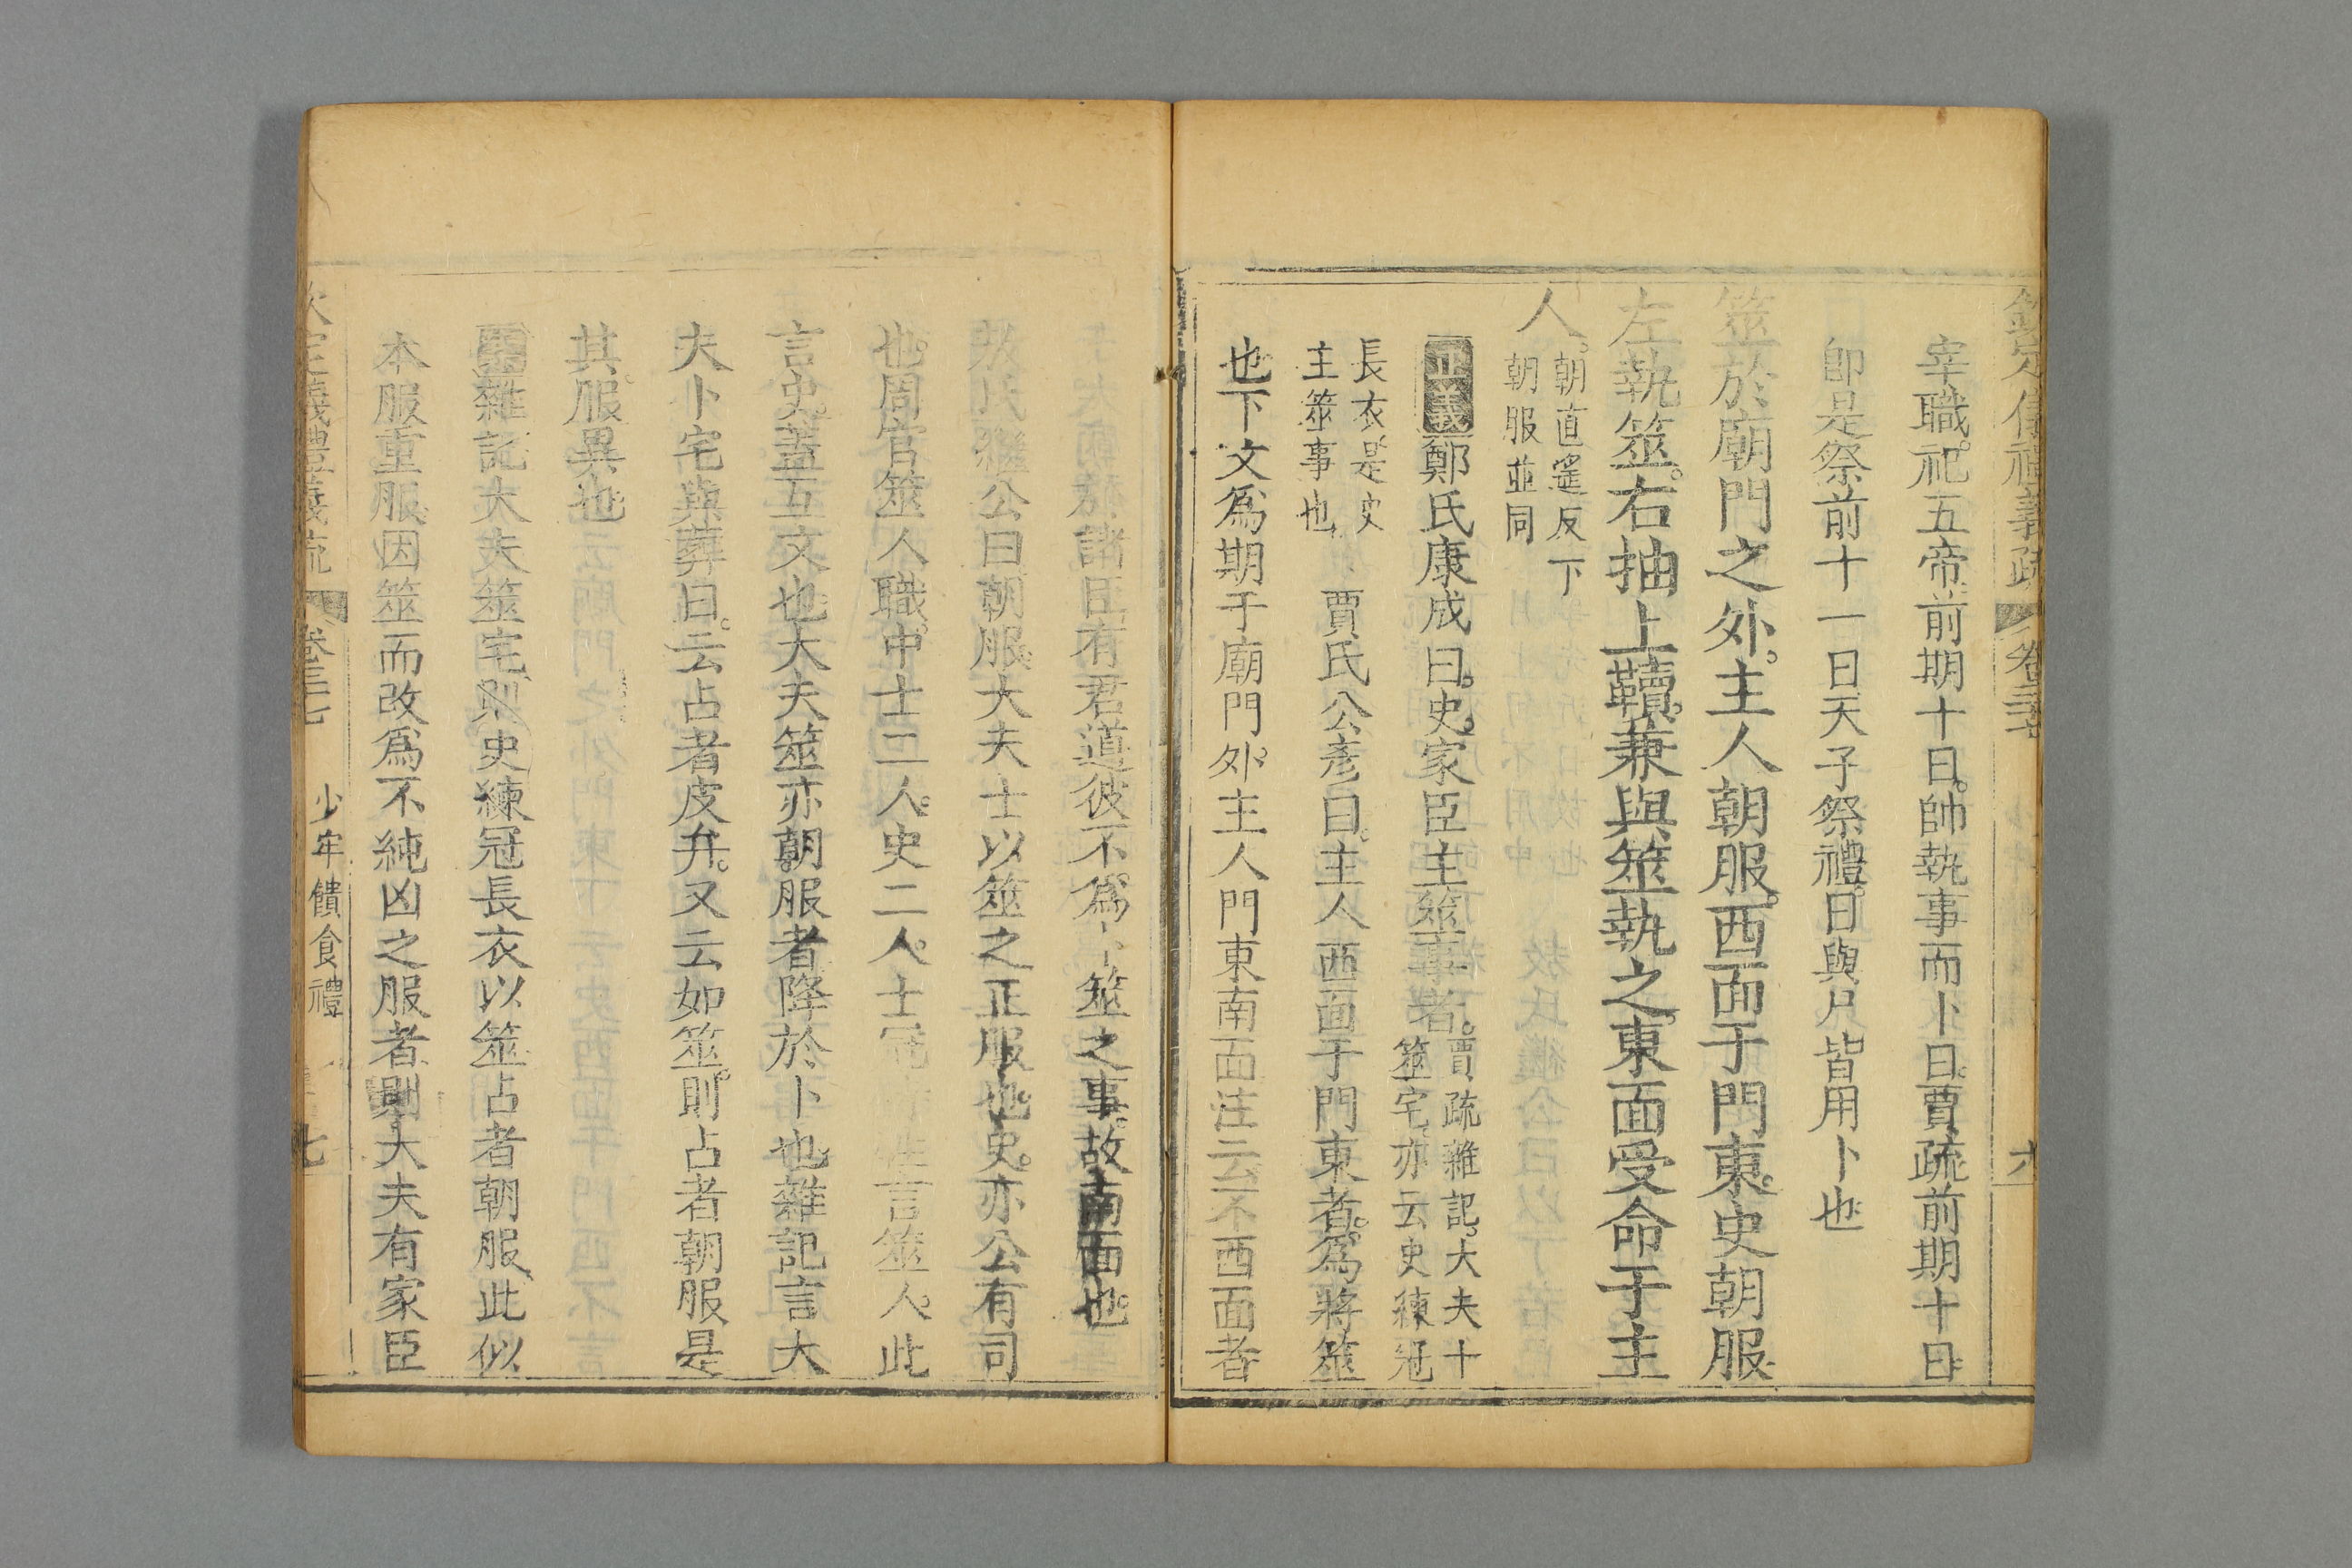 欽定儀禮義疏 卷三十七 六
宰職祀五帝前期十日帥執事而卜日賈疏前期十日
卽是祭前十一日天子祭禮日與尸皆用卜也
筮於廟門之外主人朝服西面于門東史朝服
左執筮右抽上韇兼與筮執之東面受命于主
人朝直遥反下
朝服並同
正義鄭氏康成曰史家臣主筮事者賈疏雜記大夫士
筮宅亦云史練冠
長衣是史
主筮事也
賈氏公彥曰主人西面于門東者爲將筮
也下文爲期于廟門外主人門東南面注云不西面者
諸臣有君道彼不爲卜筮之事故南面也
敖氏繼公曰朝服大夫士以筮之正服也史亦公有司
也周官筮人職中士二人史二人士冠特牲言筮人此
言史蓋互文也大夫筮亦朝服者降於卜也雜記言大
夫卜宅與葬日云占者皮弁又云如筮則占者朝服是
其服異也
雜記大夫筮宅則史練冠長衣以筮占者朝服此似
本服重服因筮而改爲不純凶之服者則大夫有家臣
欽定儀禮義疏 卷三十七 少牢饋食禮 七